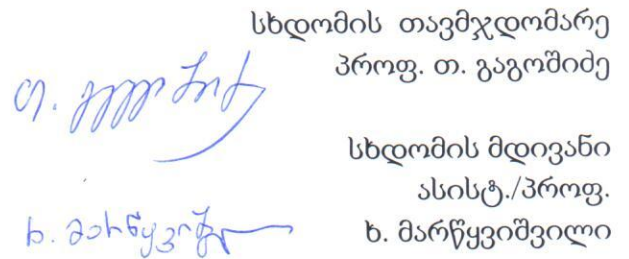 სხდომის თავმჯდომარე
პროფ. თ. გაგოშიძე
სხდომის მდივანი
ასისტ./პროფ.
ხ. მარწყვიშვილი